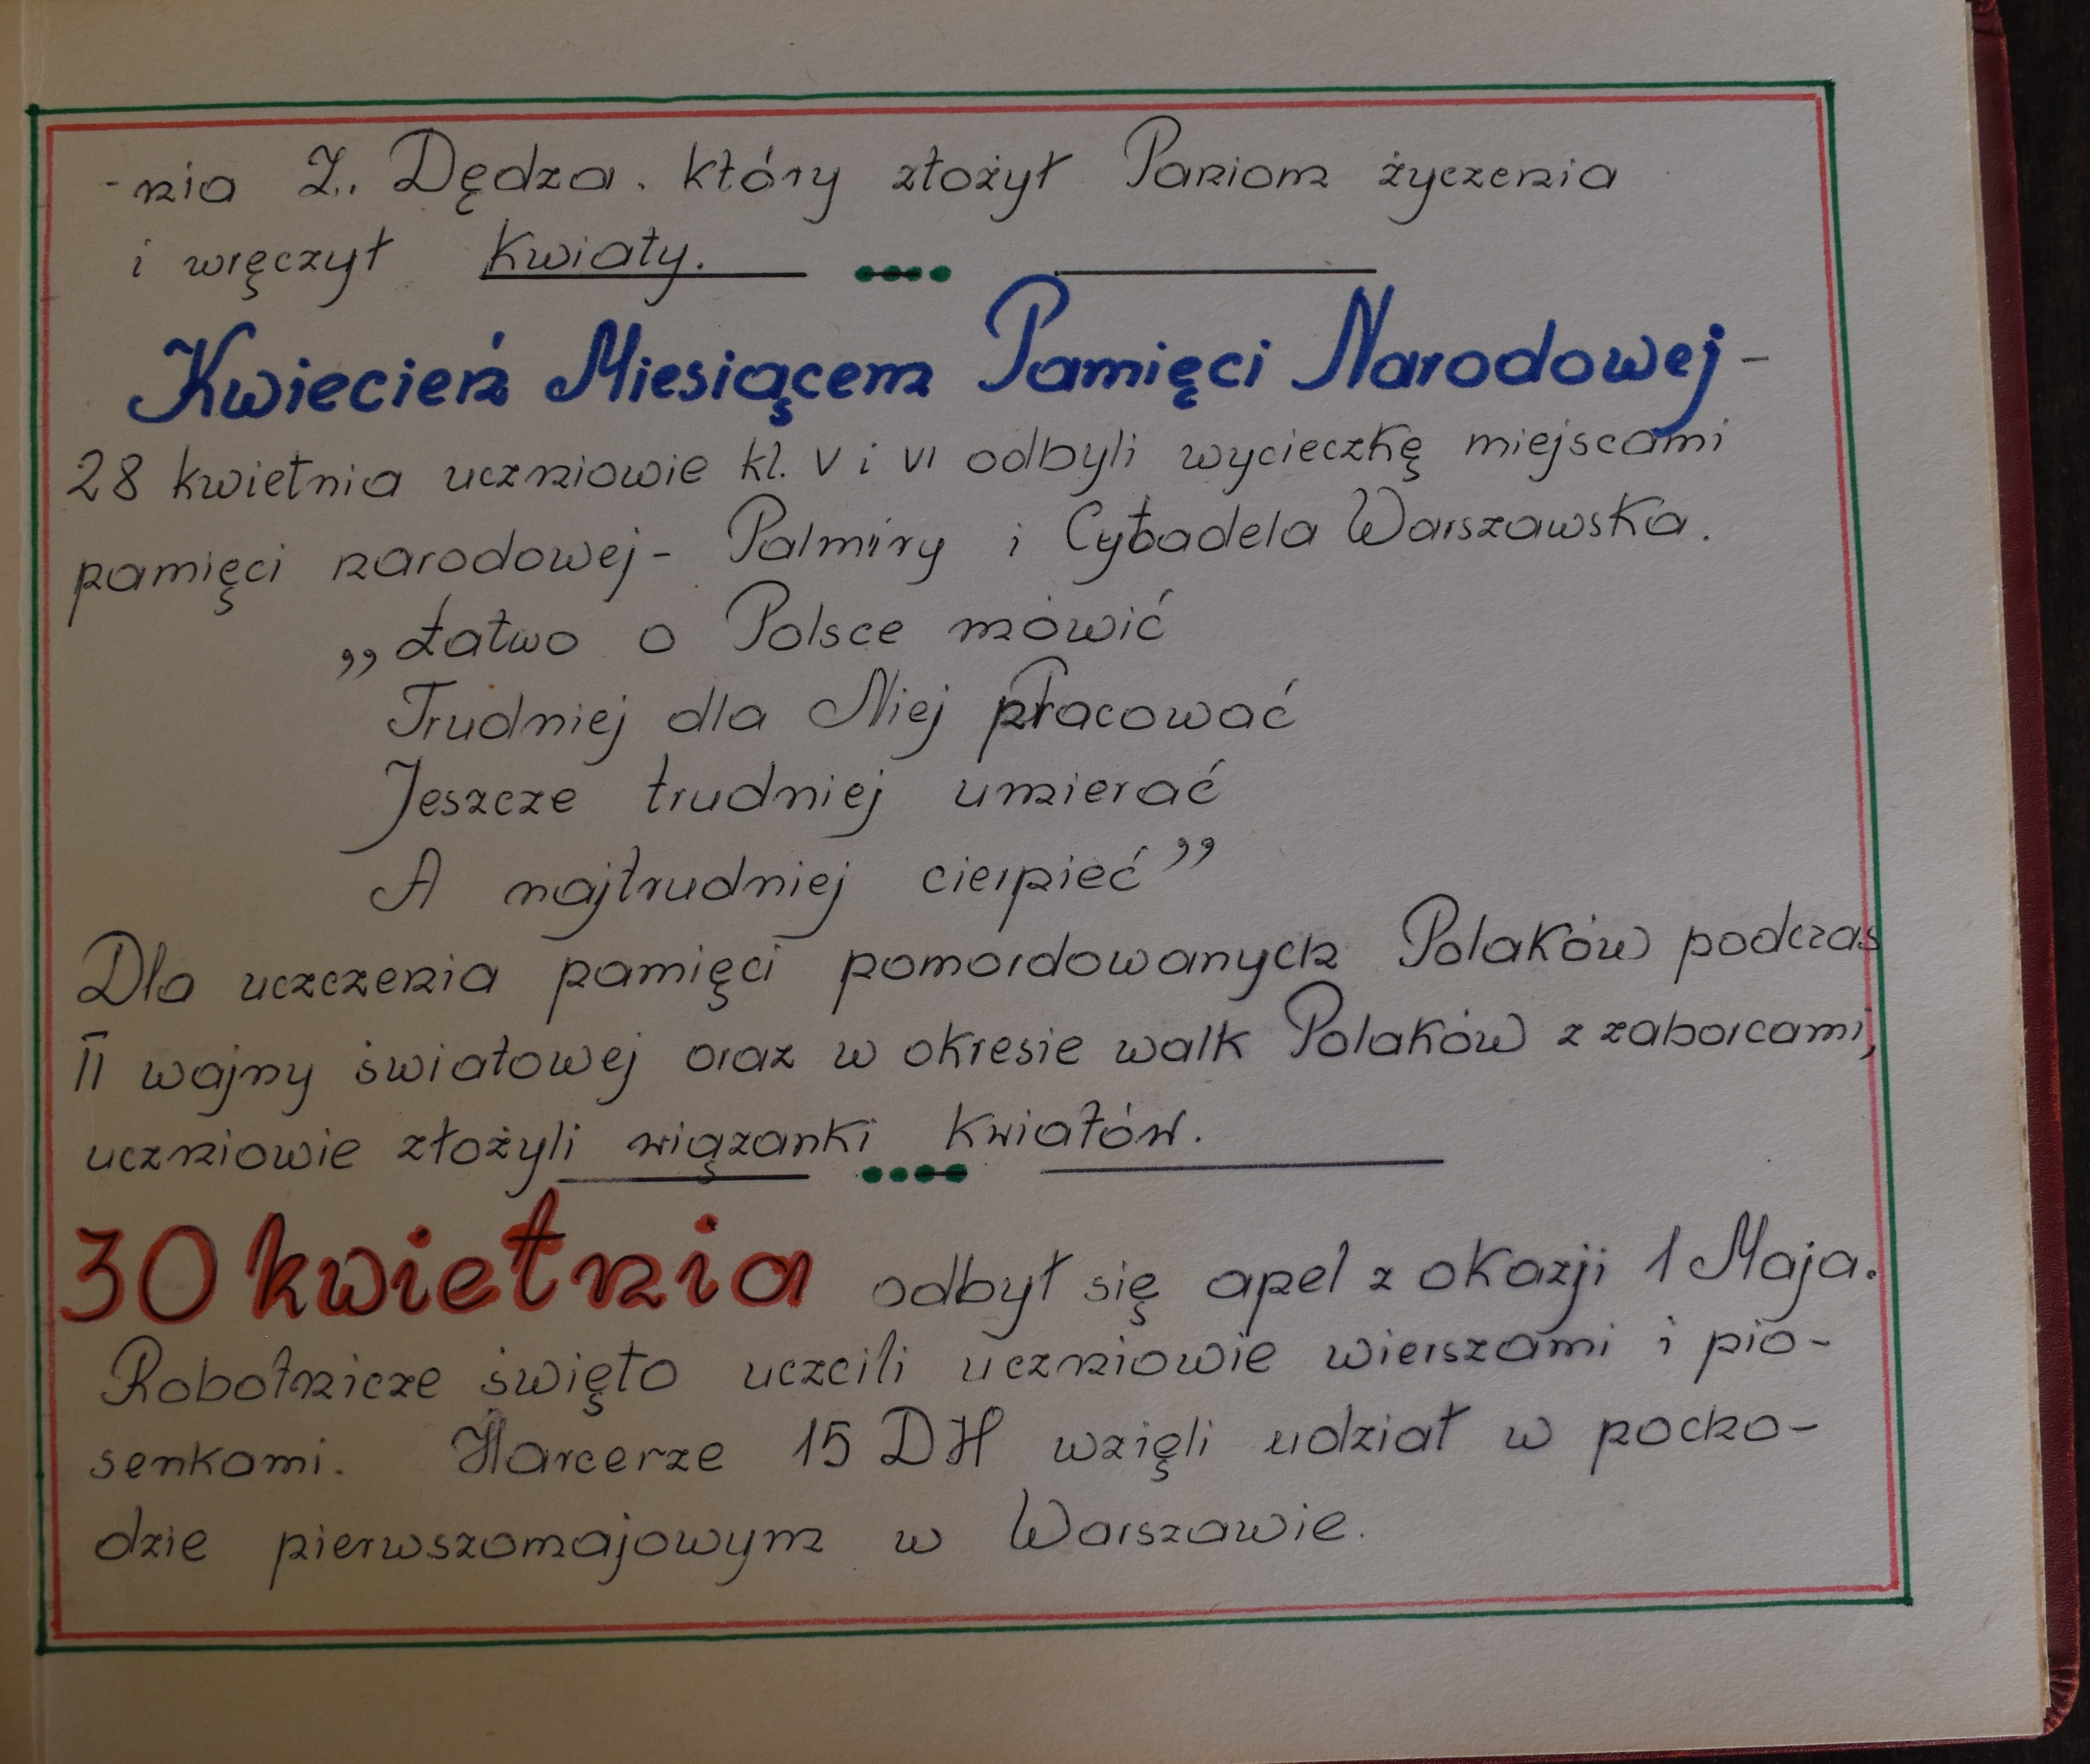 -nia Z. Dędza. który złożył Paniom życzenia
i wręczył kwiaty.
Kwiecień Miesiącem Pamięci Narodowej -
28 kwietnia uczniowie kl. V i VI odbyli wycieczkę miejscami
pamięci narodowej - Palmiry i Cytadela Warszawska.
„Łatwo o Polsce mówić
Trudniej dla Niej pracować
Jeszcze trudniej umierać
A najtrudniej cierpieć”
Dla uczczenia pamięci pomordowanych Polaków podczas
II wojny światowej oraz w okresie walk Polaków z zaborcami,
uczniowie złożyli wiązanki kwiatów.
30 kwietnia odbył się apel z okazji 1 Maja.
Robotnicze święto uczcili uczniowie wierszami i pio-
senkami. Harcerze 15 DH wzięli udział w pocho-
dzie pierwszomajowym w Warszawie.